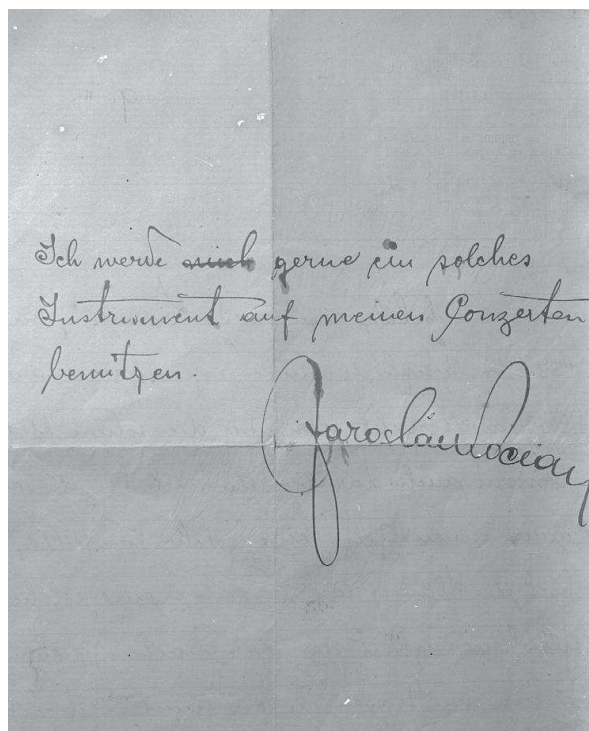 Ich werde gerne ein solches
Instrument auf meinen Conzerten
benützen.
Jaroslav Kocian